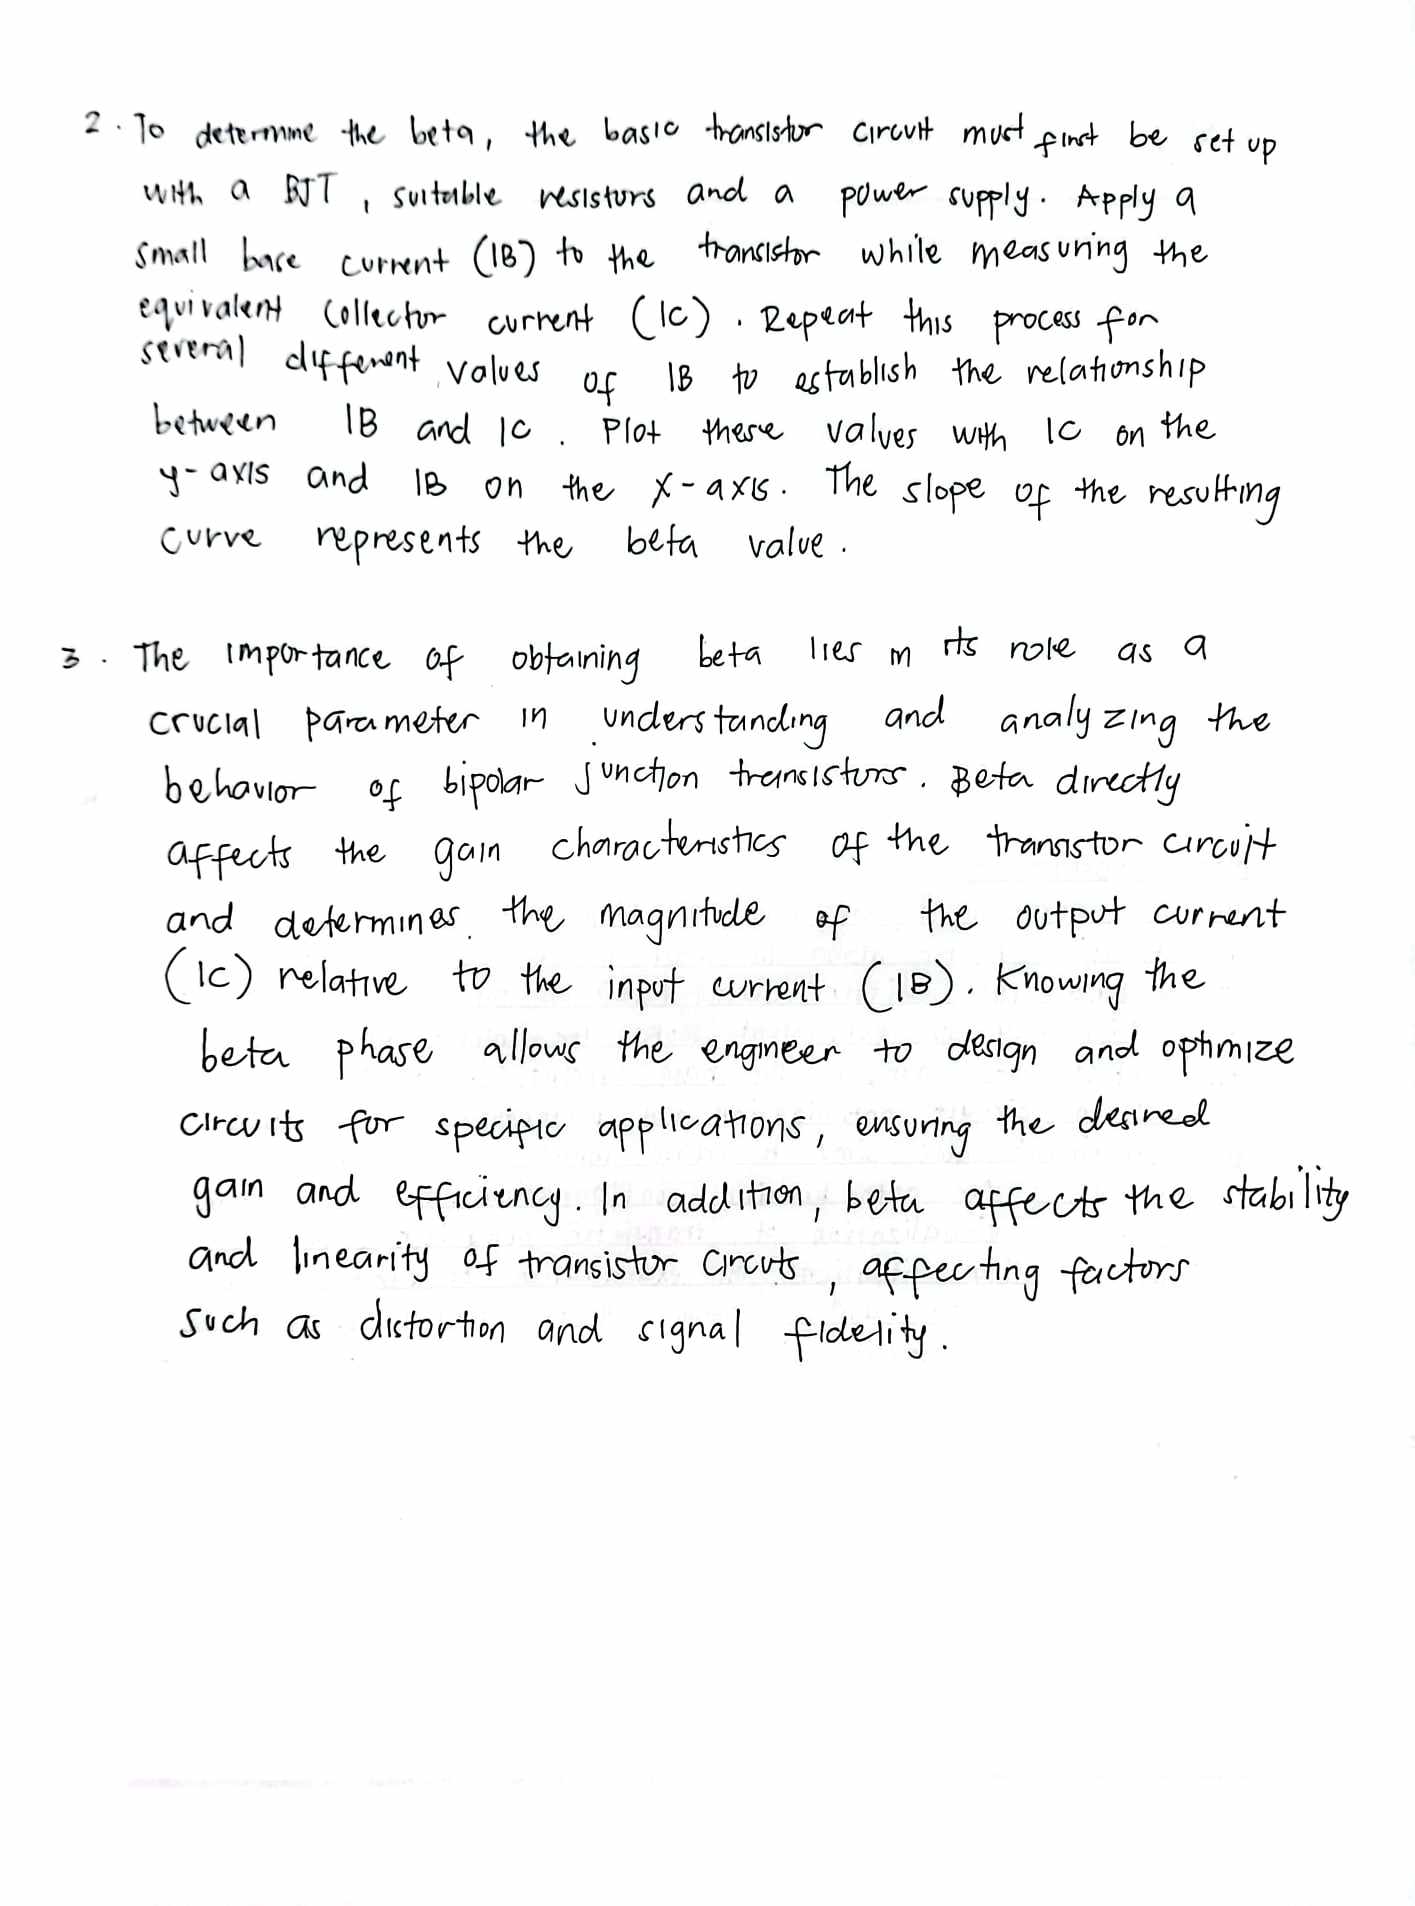 2. To determine the beta, the basic transistor circuit must first be set up
with a BJT, suitable resistors and a power supply. Apply a
small base current (IB) to the transistor while measuring the
equivalent collector current (IC). Repeat this process for
several different values of IB to establish the relationship
between IB and IC. Plot these values with IC on the
y-axis and IB on the x-axis. The slope of the resulting
curve represents the beta value.
3. The importance of obtaining beta lies in its role as a
crucial parameter in understanding and analyzing the
behavior of bipolar junction transistors. Beta directly
affects the gain characteristics of the transistor circuit
and determines the magnitude of the output current
(IC) relative to the input current (IB). Knowing the
beta phase allows the engineer to design and optimize
circuits for specific applications, ensuring the desired
gain and efficiency. In addition, beta affects the stability
and linearity of transistor circuts, affecting factors
such as distortion and signal fidelity.